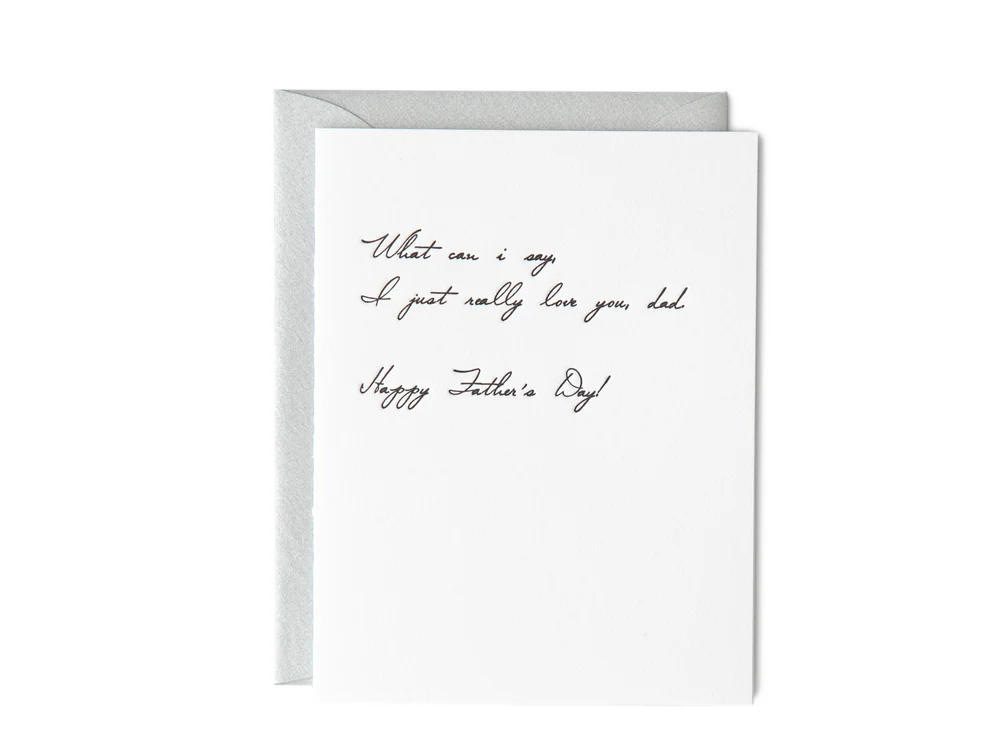 What can i say,
I just really love you, dad.
Happy Father's Day!